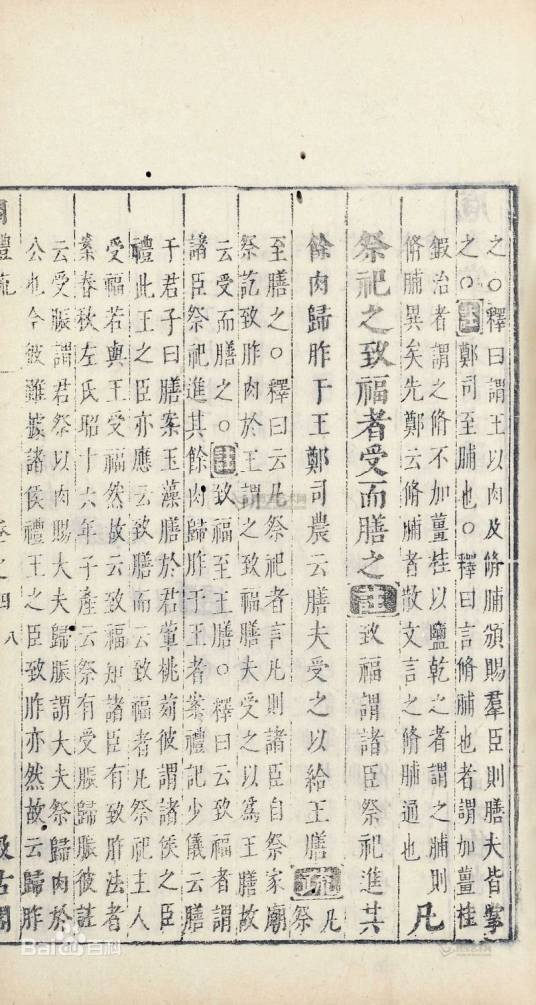 之○釋曰謂王以肉及脩脯頒賜羣臣則膳夫皆掌
之○注鄭司至脯也○釋曰言脩脯也者謂加薑桂
鍛治者謂之脩不加薑桂以鹽乾之者謂之脯則
脩脯異矣先鄭云脩脯者散文言之脩脯通也 凡
祭祀之致福者受而膳之 註 致福謂諸臣祭祀進其
餘肉歸胙于王鄭司農云膳夫受之以給王膳 疏 凡祭
至膳之○釋曰云凡祭祀者言凡則諸臣自祭家廟
祭訖致胙肉於王謂之致福膳夫受之以爲王膳故
云受而膳之○注致福至王膳○釋曰云致福者謂
諸臣祭祀進其餘肉歸胙于王者案禮記少儀云膳
于君子曰膳案玉藻膳於君葷桃茢彼謂諸侯之臣
禮此王之臣亦應云致膳而云致福者凡祭祀主人
受福若與王受福然故云致福知諸臣有致胙法者
案春秋左氏昭十六年子產云祭有受脤歸脤彼註
云受脤謂君祭以肉賜大夫歸脤謂大夫祭歸肉於
公也今彼難據諸侯禮王之臣致胙亦然故云歸胙
禮疏
卷之四
八
汲古閣
Bai 百科